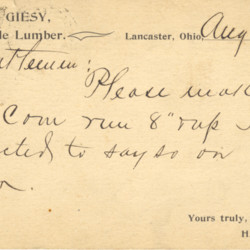 GIESY,
le Lumber.
Lancaster, Ohio, Aug
tlemen:
Please mak
Com run 8" rap
cted to say so on
Yours truly,
H